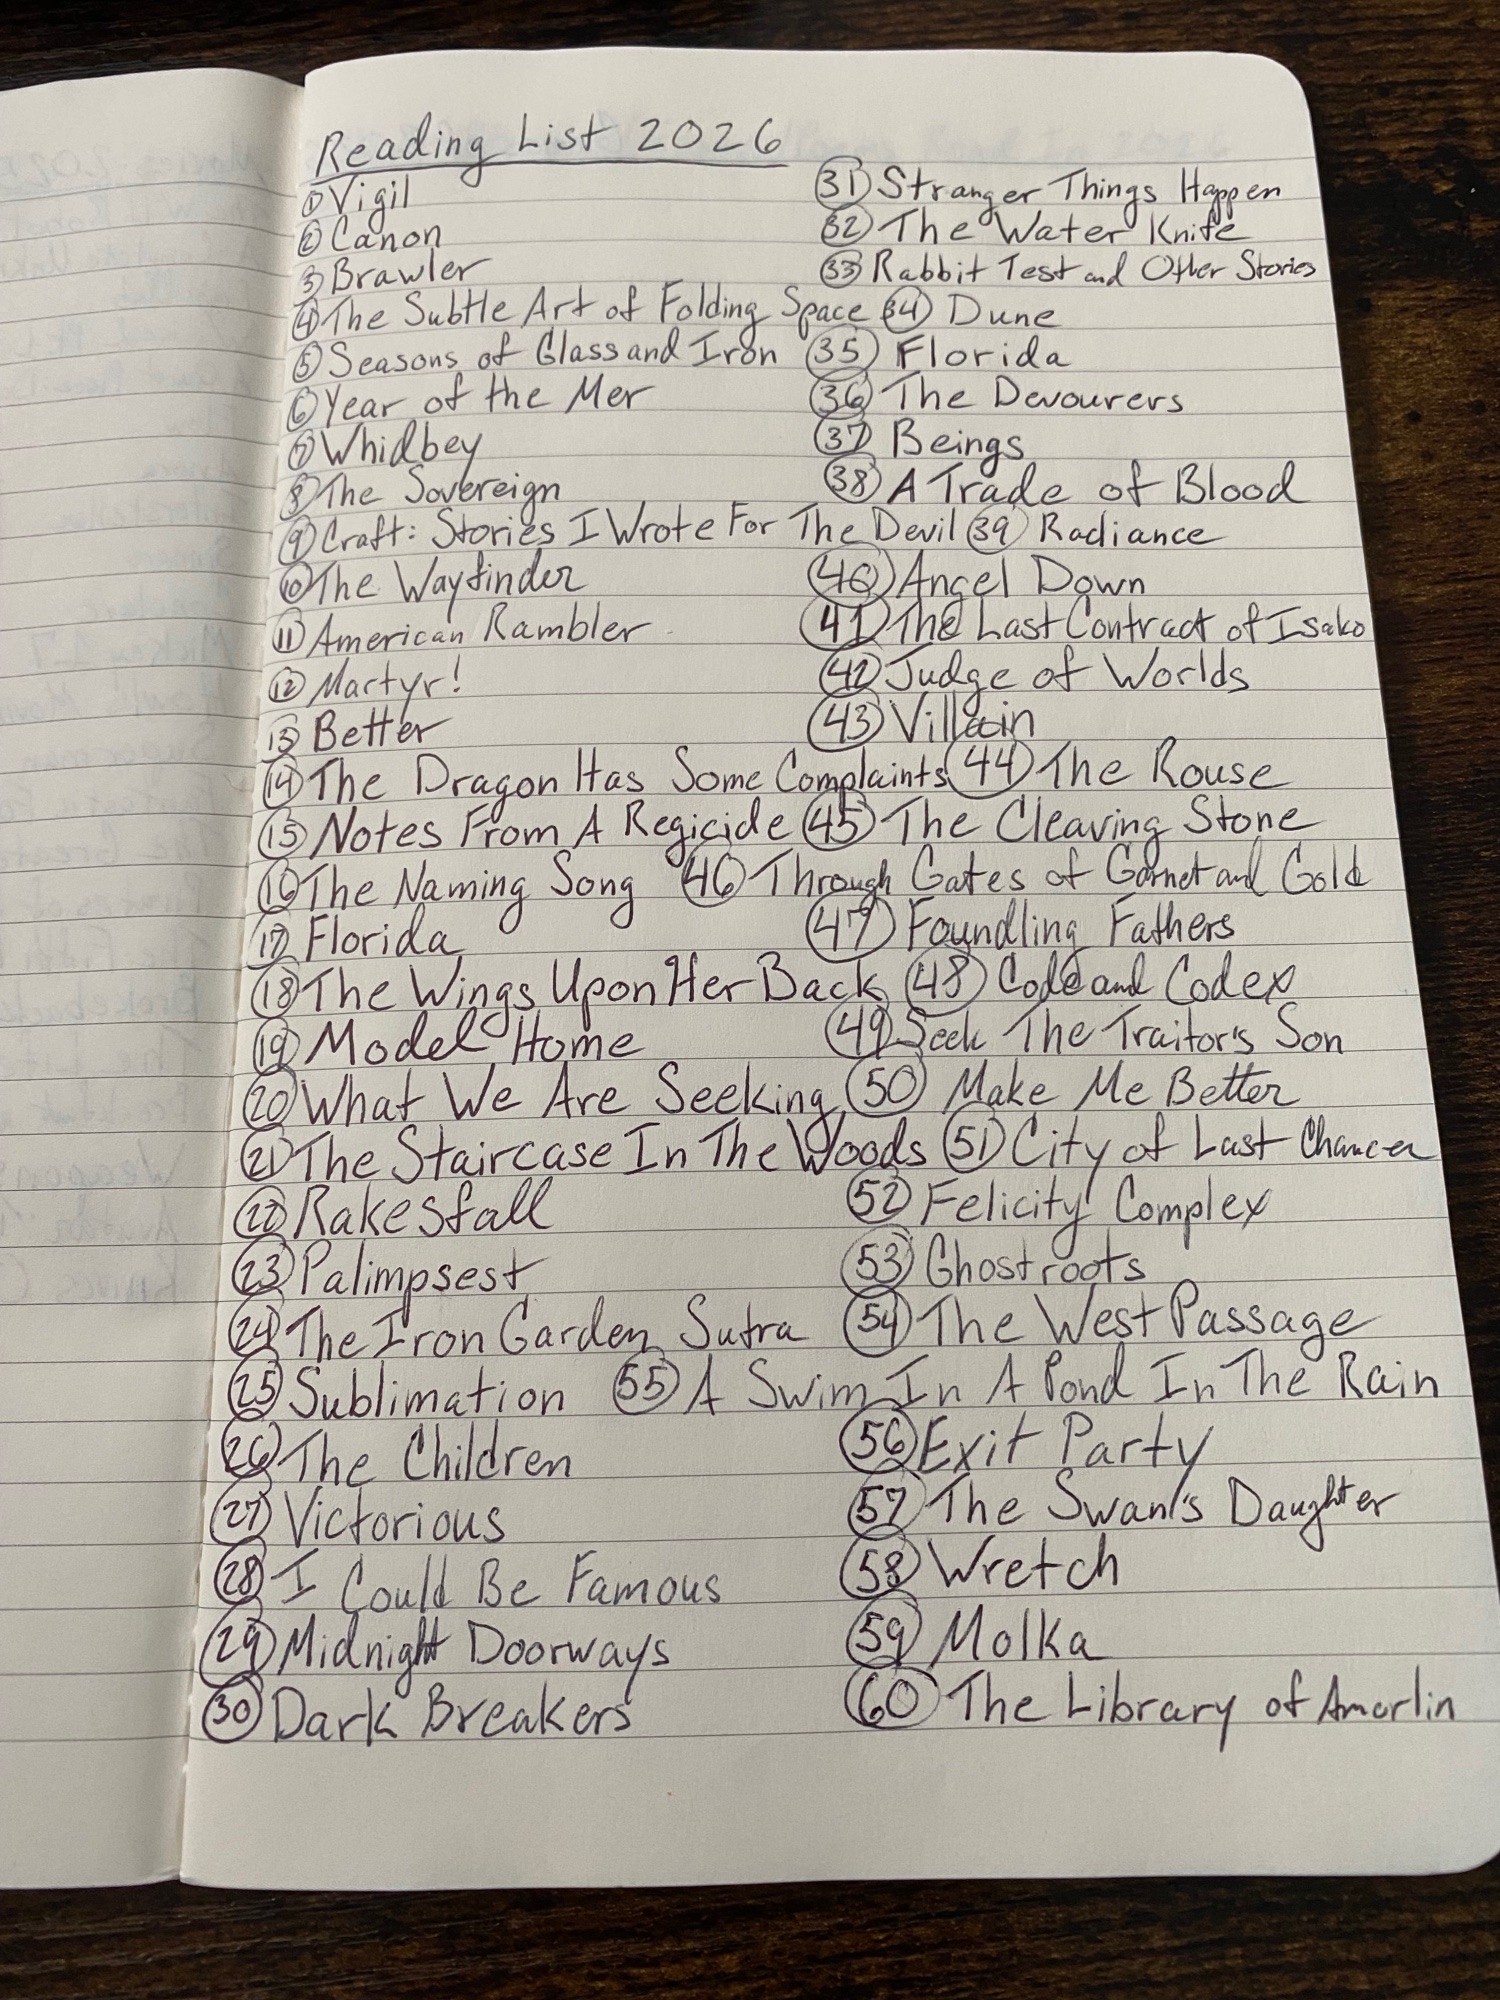 Reading List 2026
1 Vigil
2 Canon
3 Brawler
4 The Subtle Art of Folding Space
5 Seasons of Glass and Iron
6 Year of the Mer
7 Whidbey
8 The Sovereign
9 Craft: Stories I Wrote For The Devil
10 The Wayfinder
11 American Rambler
12 Martyr!
13 Better
14 The Dragon Has Some Complaints
15 Notes From A Regicide
16 The Naming Song
17 Florida
18 The Wings Upon Her Back
19 Model Home
20 What We Are Seeking
21 The Staircase In The Woods
22 Rakesfall
23 Palimpsest
24 The Iron Garden Sutra
25 Sublimation
26 The Children
27 Victorious
28 I Could Be Famous
29 Midnight Doorways
30 Dark Breakers
31 Stranger Things Happen
32 The Water Knife
33 Rabbit Test and Other Stories
34 Dune
35 Florida
36 The Devourers
37 Beings
38 A Trade of Blood
39 Radiance
40 Angel Down
41 The Last Contract of Isako
42 Judge of Worlds
43 Villain
44 The Rouse
45 The Cleaving Stone
46 Through Gates of Garnet and Gold
47 Foundling Fathers
48 Code and Codex
49 Seek The Traitor's Son
50 Make Me Better
51 City of Last Chances
52 Felicity Complex
53 Ghostroots
54 The West Passage
55 A Swim In A Pond In The Rain
56 Exit Party
57 The Swan's Daughter
58 Wretch
59 Molka
60 The Library of Amorlin